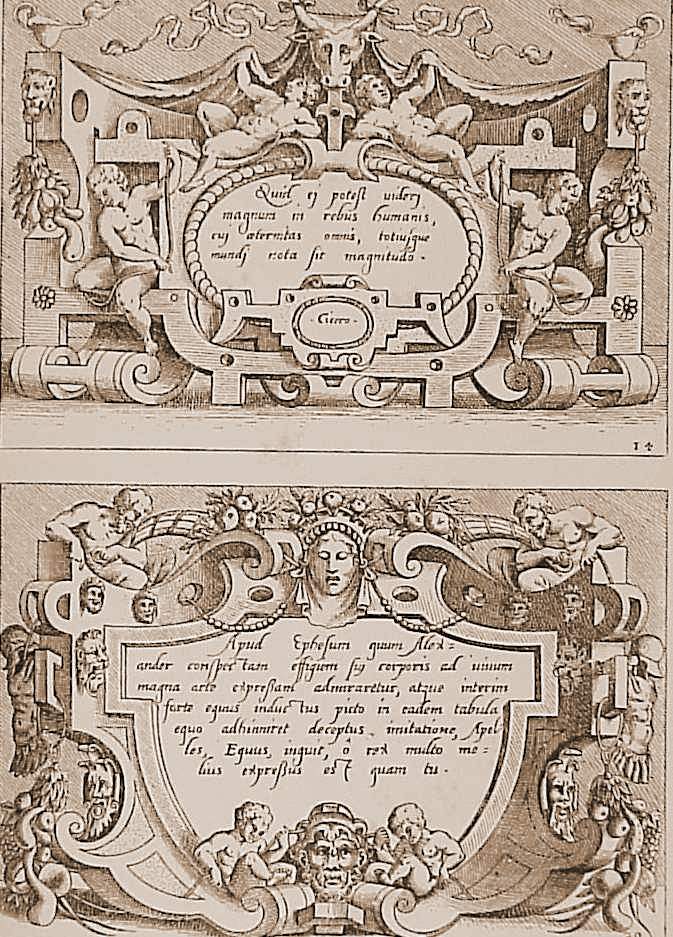 Quid ej potest viderj
magnum in rebus humanis,
cuj æternitas omnis, totiusque
mundj nota sit magnitudo.
Cicero.
14
Apud Ephesum quum Alex=
ander conspectam effigiem sui corporis ad uiuum
magna arte expressam admiraretur, atque interim
forte equus inductus picto in eadem tabula
equo adhinniret deceptus imitatione, Apel
les, Equus, inquit, ô rex multo me=
lius expressus est quam tu.